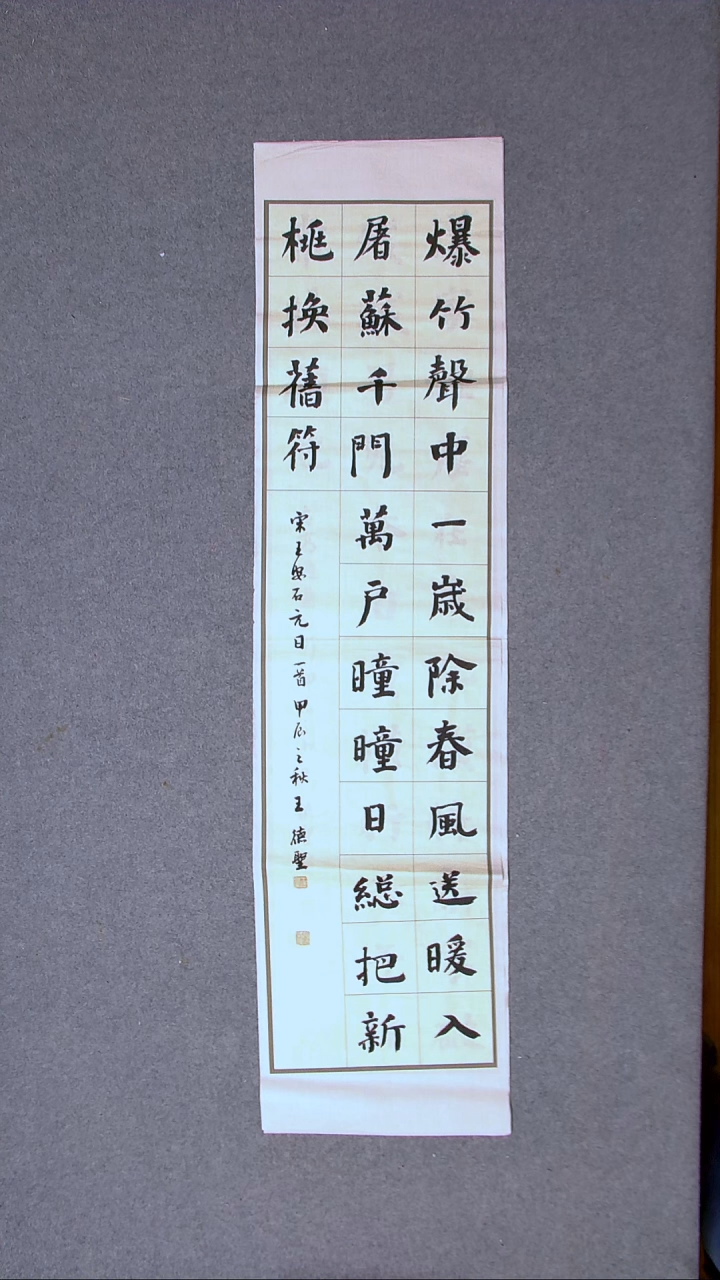 爆竹聲中一歲除春風送暖入
屠蘇千門萬户曈曈日總把新
桃換舊符
宋王安石元日一首甲辰之秋王德聖